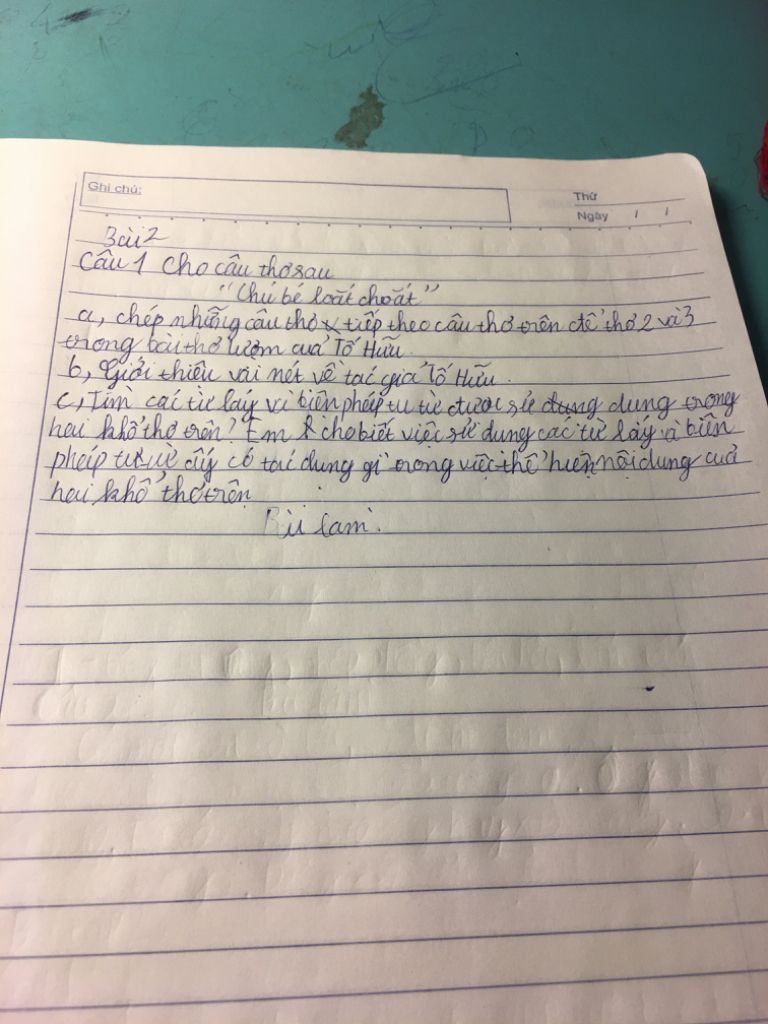 Ghi chú:
Thứ
Ngày / /
Bài 2
Câu 1 Cho câu thơ sau
"Chú bé loắt choắt"
a, chép những câu thơ tiếp theo câu thơ trên để thơ 2 và 3
trong bài thơ lượm của Tố Hữu.
b, Giới thiệu vài nét về tác giả Tố Hữu.
c, Tìm các từ láy và biên pháp tu từ được sử dụng dung trong
hai khổ thơ trên? Em cho biết việc sử dung các từ láy và biên
pháp tu từ ấy có tác dung gì trong việc thể hiện nội dung của
hai khổ thơ trên
Bài làm.